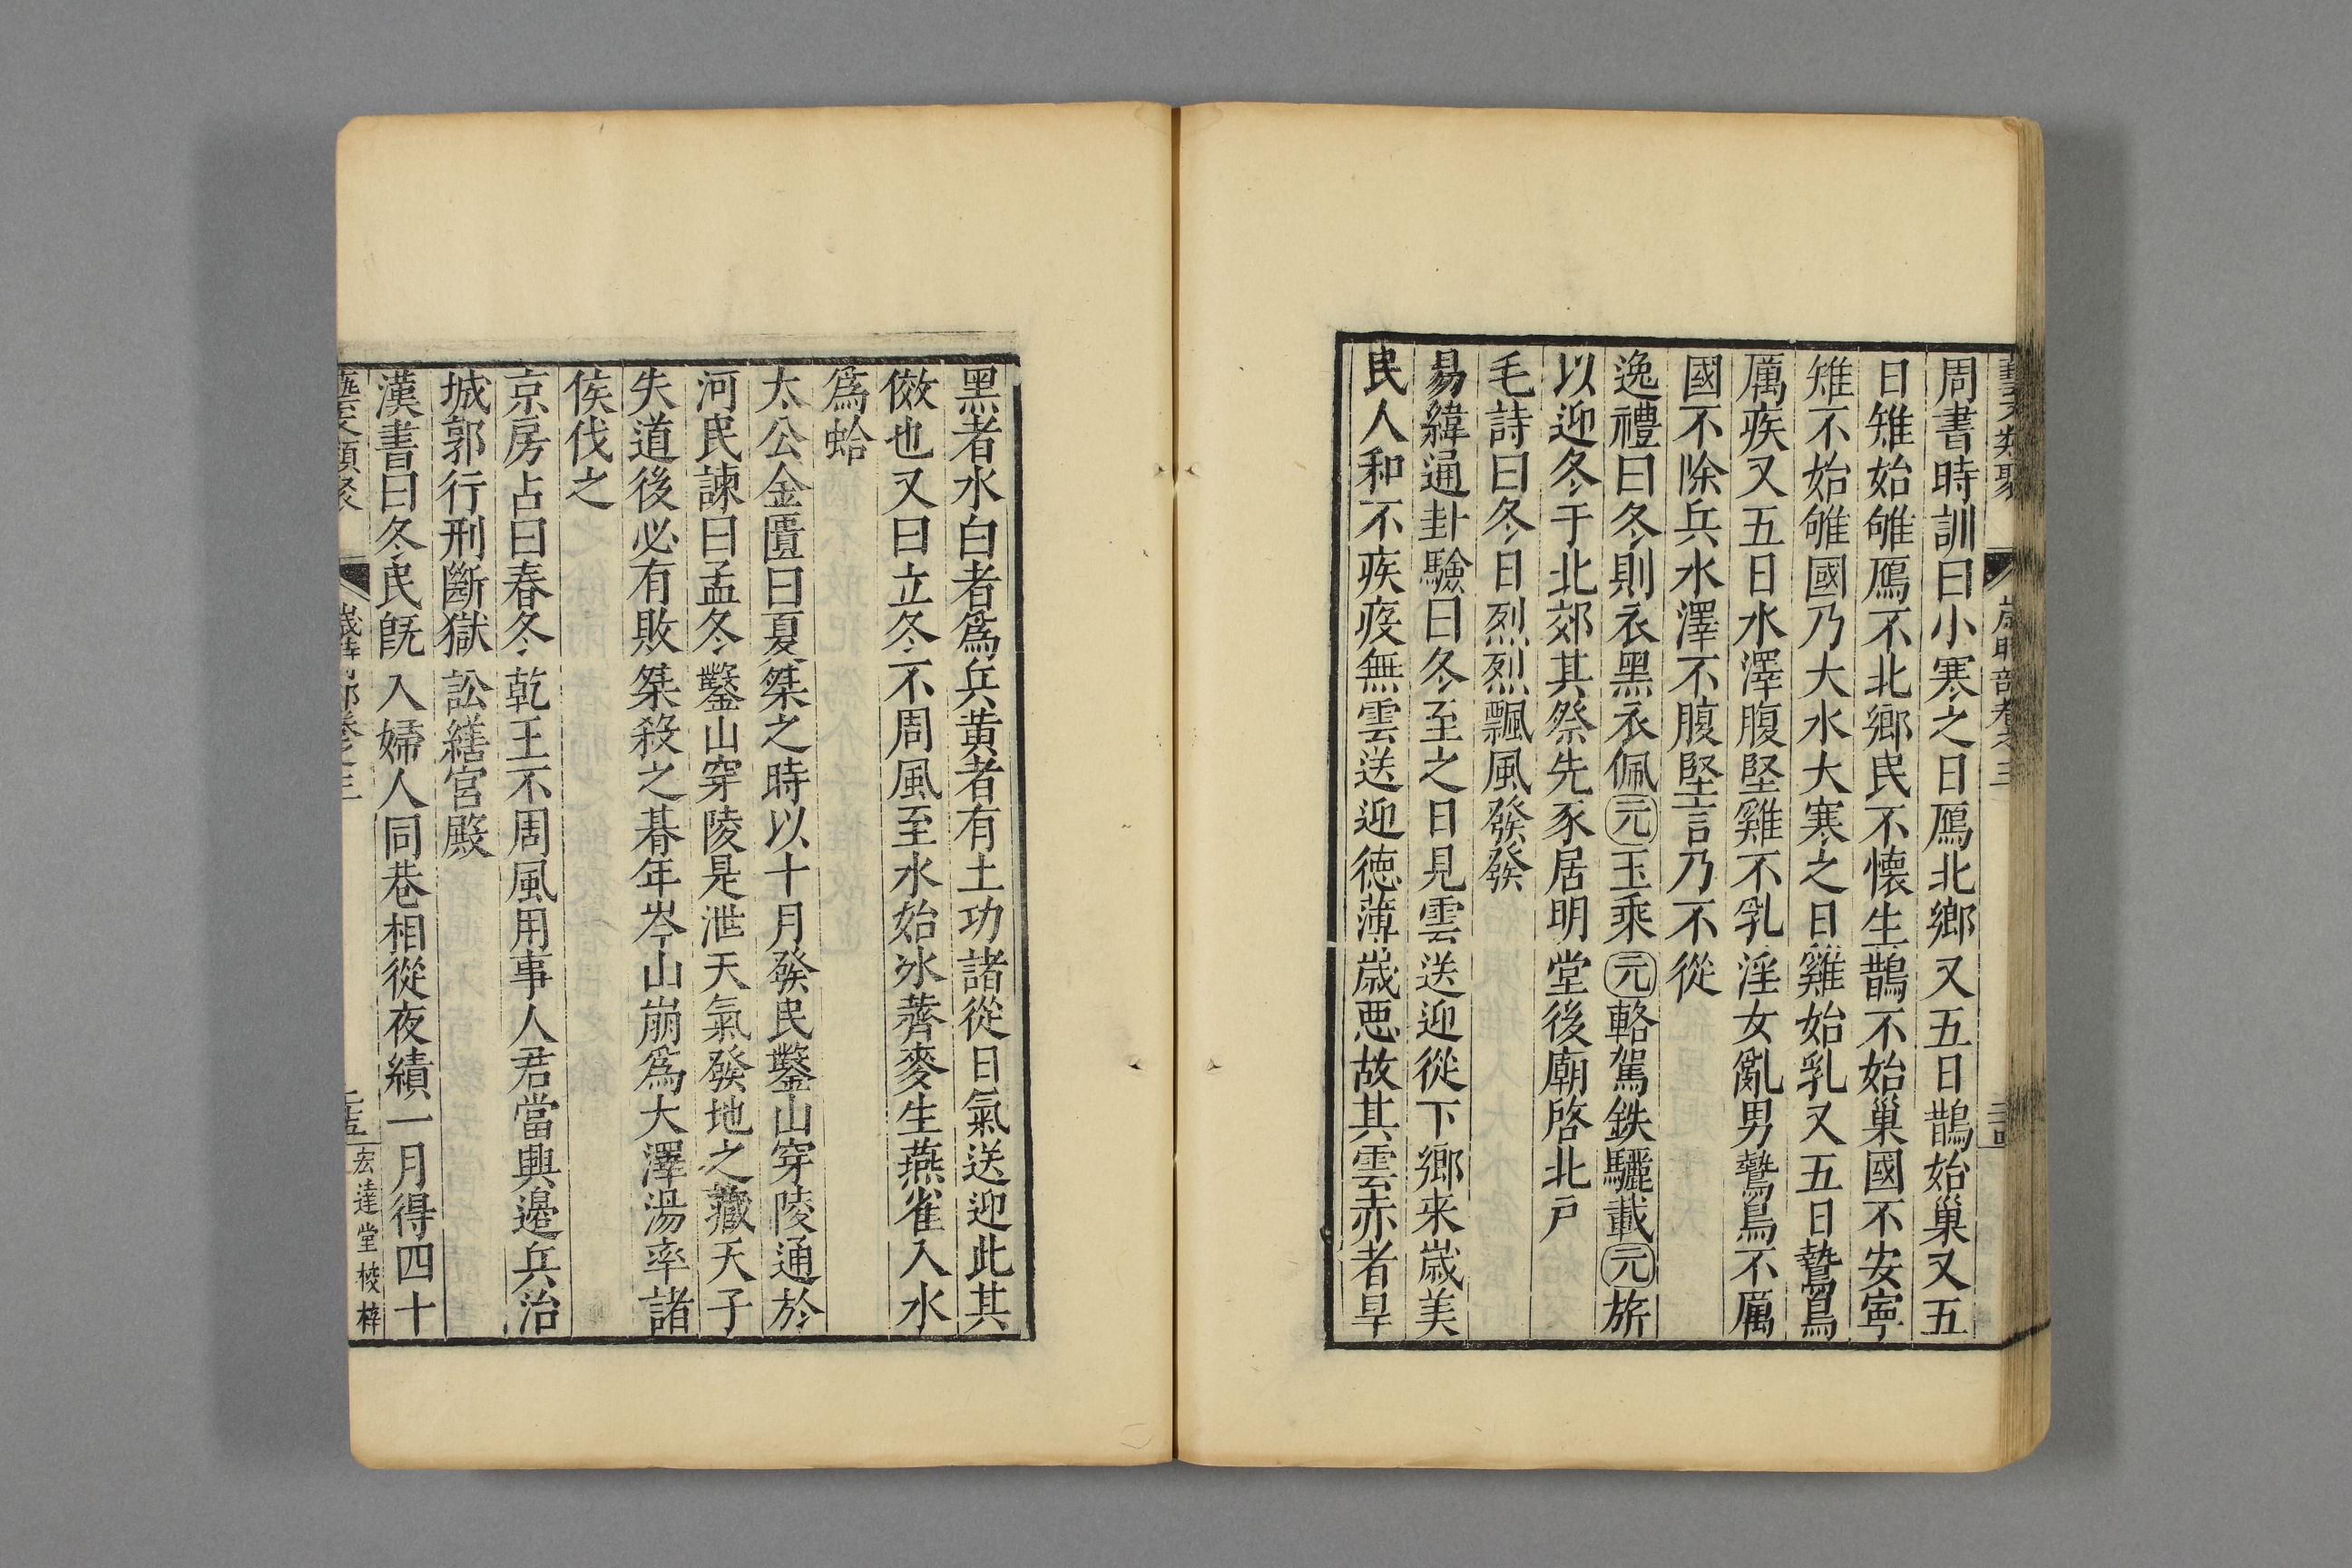 藝文類聚 歲時部卷之三 二十四
周書時訓曰小寒之日鴈北鄉又五日鵲始巢又五
日雉始雊鴈不北鄉民不懐生鵲不始巢國不安寧
雉不始雊國乃大水大寒之日雞始乳又五日鷙鳥
厲疾又五日水澤腹堅雞不乳淫女亂男鷙鳥不厲
國不除兵水澤不腹堅言乃不從
逸禮曰冬則衣黑衣佩元玉乘元輅駕鉄驪載元旂
以迎冬于北郊其祭先豕居明堂後廟啓北戶
毛詩曰冬日烈烈飄風發發
易緯通卦驗曰冬至之日見雲送迎從下鄉来歲美
民人和不疾疫無雲送迎德薄歲惡故其雲赤者旱
黑者水白者爲兵黄者有土功諸從日氣送迎此其
傚也又曰立冬不周風至水始冰薺麥生燕雀入水
爲蛤
太公金匱曰夏桀之時以十月發民鑿山穿陵通於
河民諫曰孟冬鑿山穿陵是泄天氣發地之藏天子
失道後必有敗桀殺之朞年岑山崩爲大澤湯率諸
侯伐之
京房占曰春冬乾王不周風用事人君當興邊兵治
城郭行刑斷獄訟繕宮殿
漢書曰冬民旣入婦人同巷相從夜績一月得四十
藝文類聚 歲時部卷之三 二十五 宏達堂校梓